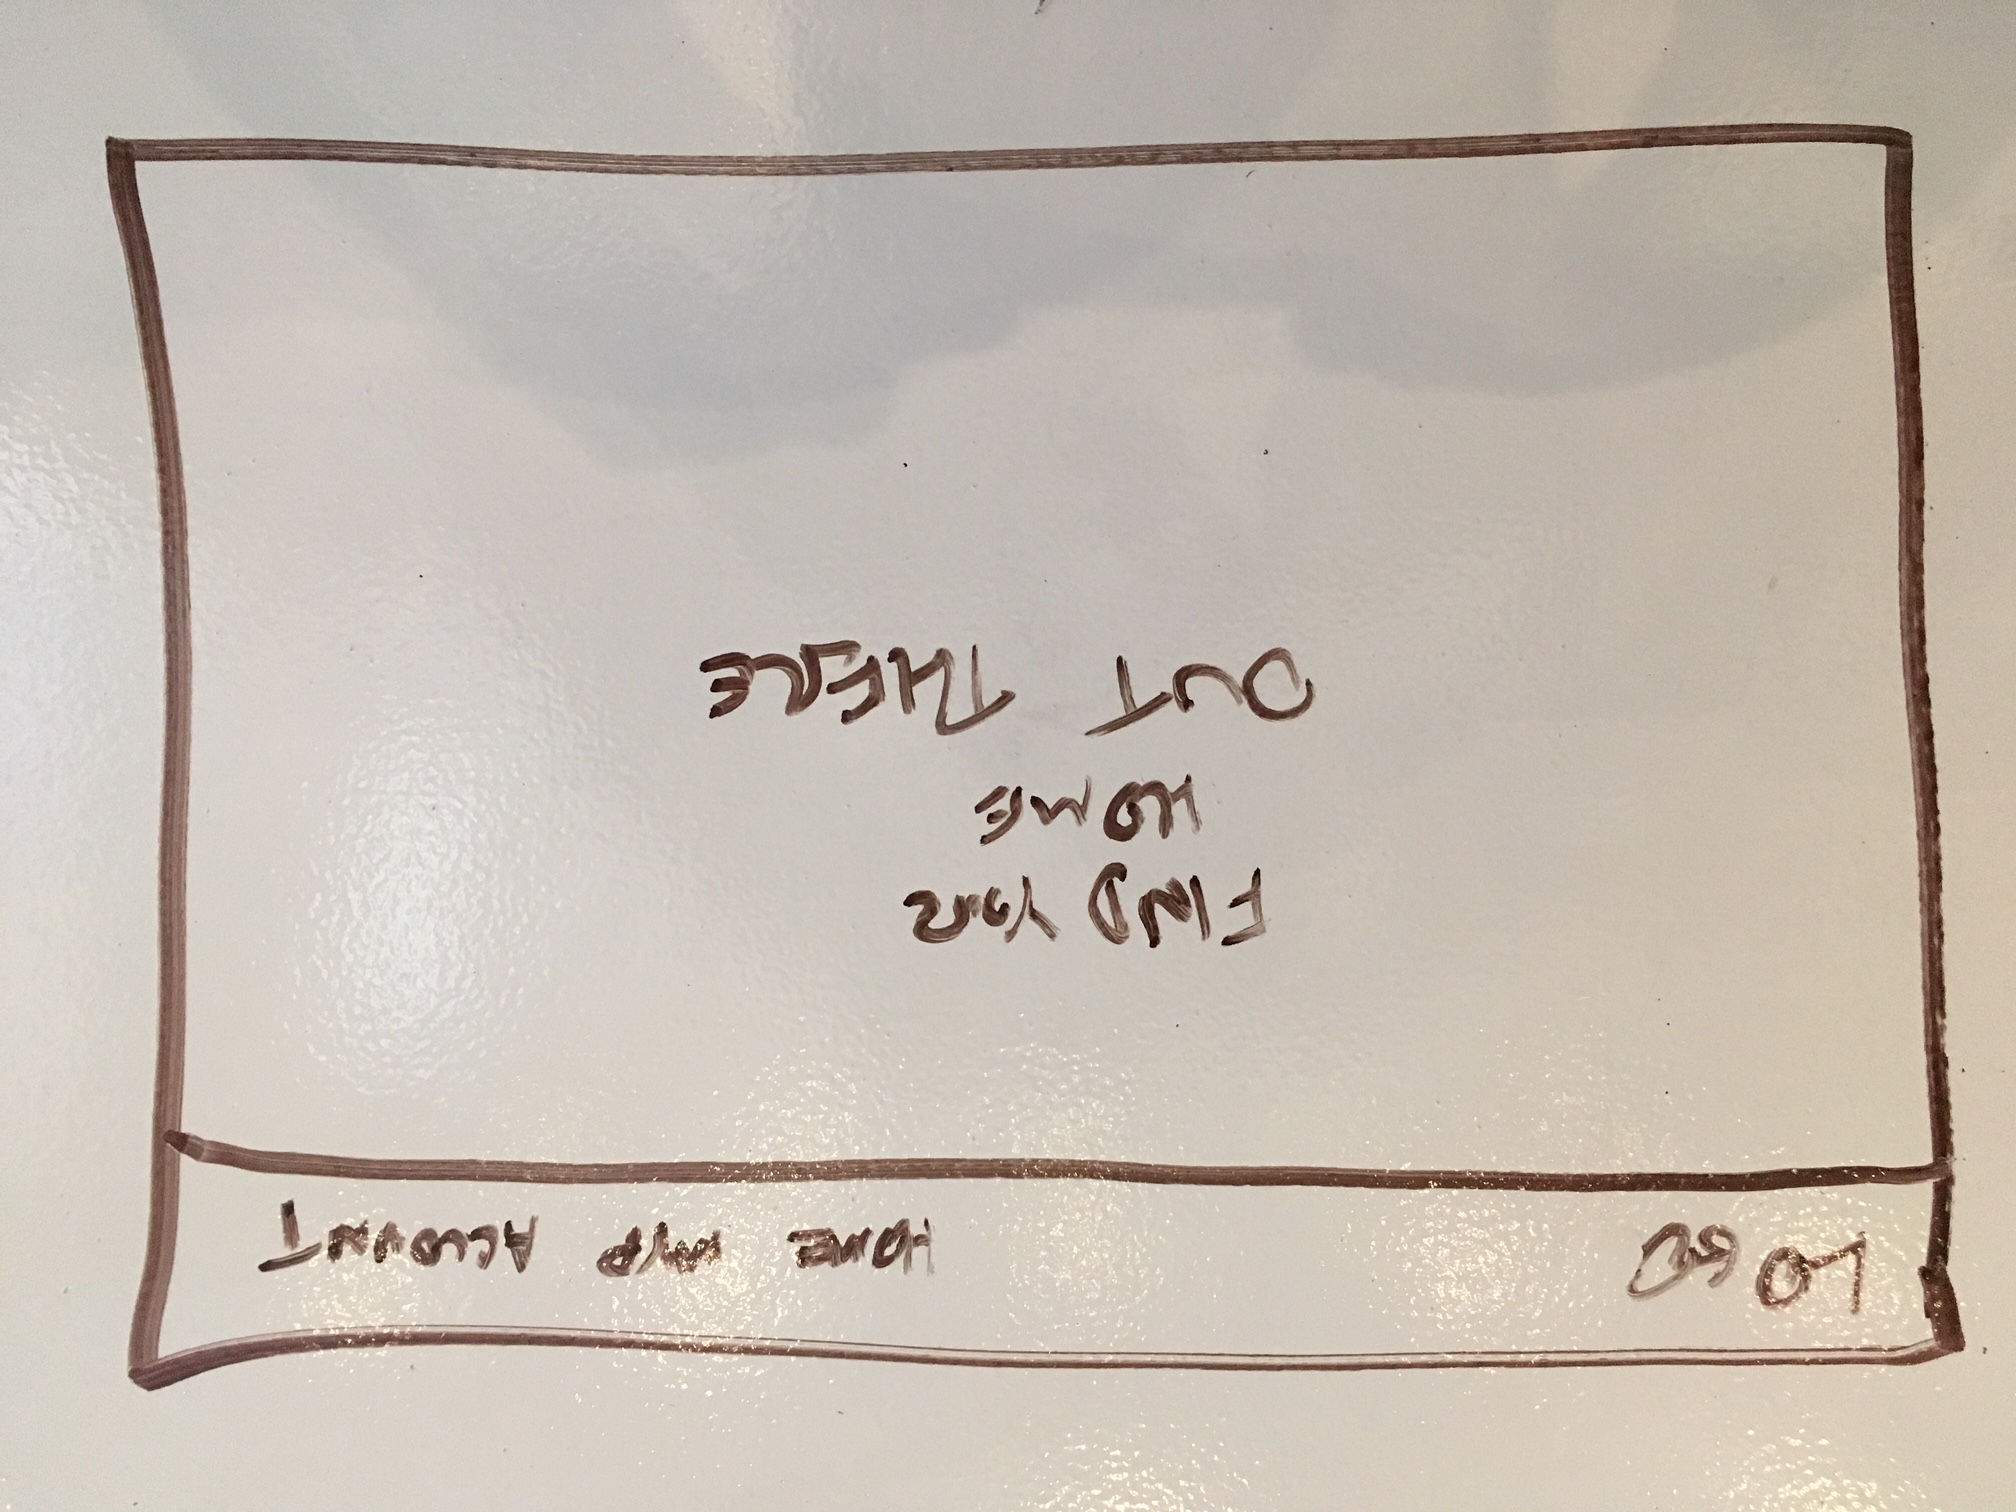 LOGO HOME MAP ACCOUNT
FIND YOUR
HOME
OUT THERE